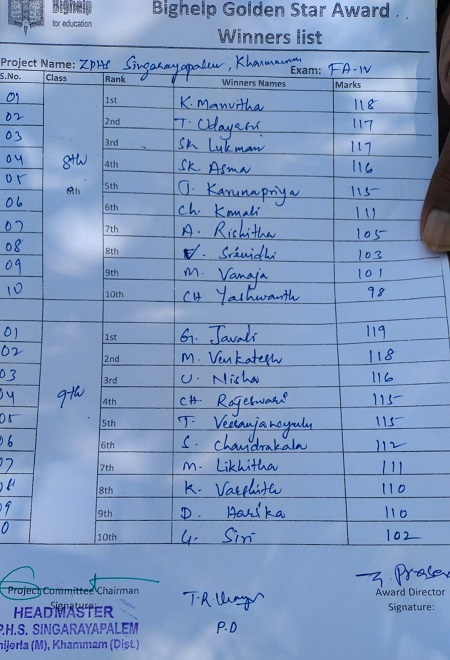 Bighelp
for education
Bighelp Golden Star Award
Winners list
Project Name: ZPHS Singarayapalem, Exam: FA-IV
S.No. Class Rank Winners Names Marks
01 1st K. Manvitha 118
02 2nd T. Udayasri 117
03 3rd Sk Lukman 117
04 8th 4th Sk. Asma 116
05 8th 5th J. Karunapriya 115
06 6th Ch. Komali 111
07 7th A. Rishitha 105
08 8th V. Srinidhi 103
09 9th M. Vanaja 101
10 10th CH Yashwanth 98
01 1st G. Javali 119
02 2nd M. Venkatesh 118
03 3rd U. Nisha 116
04 9th 4th CH. Rajeswari 115
05 5th T. Veeranjaneyulu 115
06 6th S. Chandrakala 112
07 7th M. Likhitha 111
08 8th K. Varshith 110
09 9th D. Harika 110
0 10th Y. Siri 102
Project Committee Chairman
Signature:
HEADMASTER
P.H.S. SINGARAYAPALEM
nijerla (M), Khammam (Dist.)
P.D
Award Director
Signature: